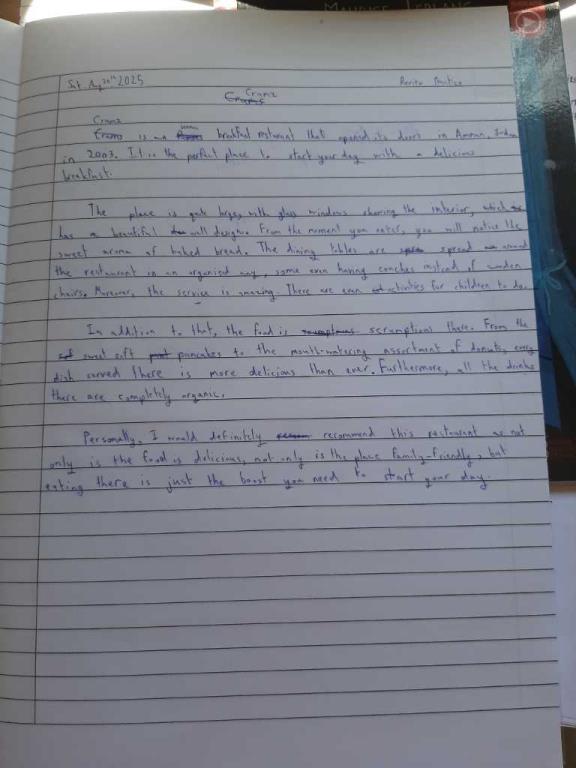 MAURICE LEBLANC
Sat Aug 30th 2025 Review Practice
Cramz
Cramz
is an breakfast restaurant that opened its doors in Amman, Jordan
in 2003. It is the perfect place to start your day with a delicious
breakfast.
The place is quite large, with glass windows showing the interior, which
has a beautiful wall design. From the moment you enter, you will notice the
sweet aroma of baked bread. The dining tables are spread around
the restaurant in an organised way, some even having couches instead of wooden
chairs. Moreover, the service is amazing. There are even activities for children to do.
In addition to that, the food is scrumptious there. From the
sweet soft pancakes to the mouth-watering assortment of donuts, every
dish served there is more delicious than ever. Furthermore, all the drinks
there are completely organic.
Personally, I would definitely recommend this restaurant as not
only is the food is delicious, not only is the place family-friendly, but
eating there is just the boost you need to start your day.